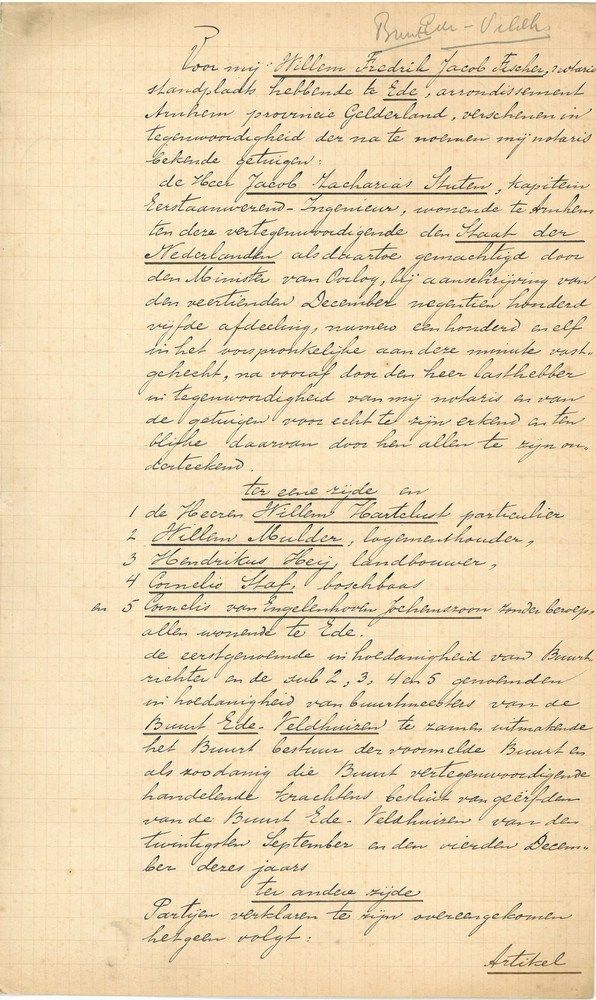 Buurt Ede - Veldh.
Voor mij Willem Fredrik Jacob Fischer, notaris
standplaats hebbende te Ede, arrondissement
Arnhem provincie Gelderland, verschenen in
tegenwoordigheid der na te noemen mij notaris
bekende getuigen:
de Heer Jacob Zacharias Stuten, Kapitein
Eerstaanwezend-Ingenieur, wonende te Arnhem
ten deze vertegenwoordigende den Staat der
Nederlanden als daartoe gemachtigd door
den Minister van Oorlog, bij aanschrijving van
den veertienden December negentien honderd
vijfde afdeeling, numero een honderd en elf
in het oorspronkelijke aan deze minute vast-
gehecht, na vooraf door den heer lasthebber
in tegenwoordigheid van mij notaris en van
de getuigen voor echt te zijn erkend en ten
blijke daarvan door hen allen te zijn on-
derteekend.
ter eene zijde en
1 de Heeren Willem Hartelust particulier
2 Willem Mulder, logementhouder,
3 Hendrikus Heij, landbouwer,
4 Cornelis Staf, boschbaas
en 5 Cornelis van Engelenhoven Jochemszoon zonder beroep,
allen wonende te Ede.
de eerstgenoemde in hoedanigheid van Buurt
richter en de sub 2, 3, 4 en 5 genoemden
in hoedanigheid van buurtmeesters van de
Buurt Ede-Veldhuizen te zamen uitmakende
het Buurt bestuur der voormelde Buurt en
als zoodanig die Buurt vertegenwoordigende
handelende krachtens besluit van geërfden
van de Buurt Ede-Veldhuizen van den
twintigsten September en den vierden Decem-
ber dezes jaars
ter andere zijde
Partijen verklaren te zijn overeengekomen
hetgeen volgt:
Artikel